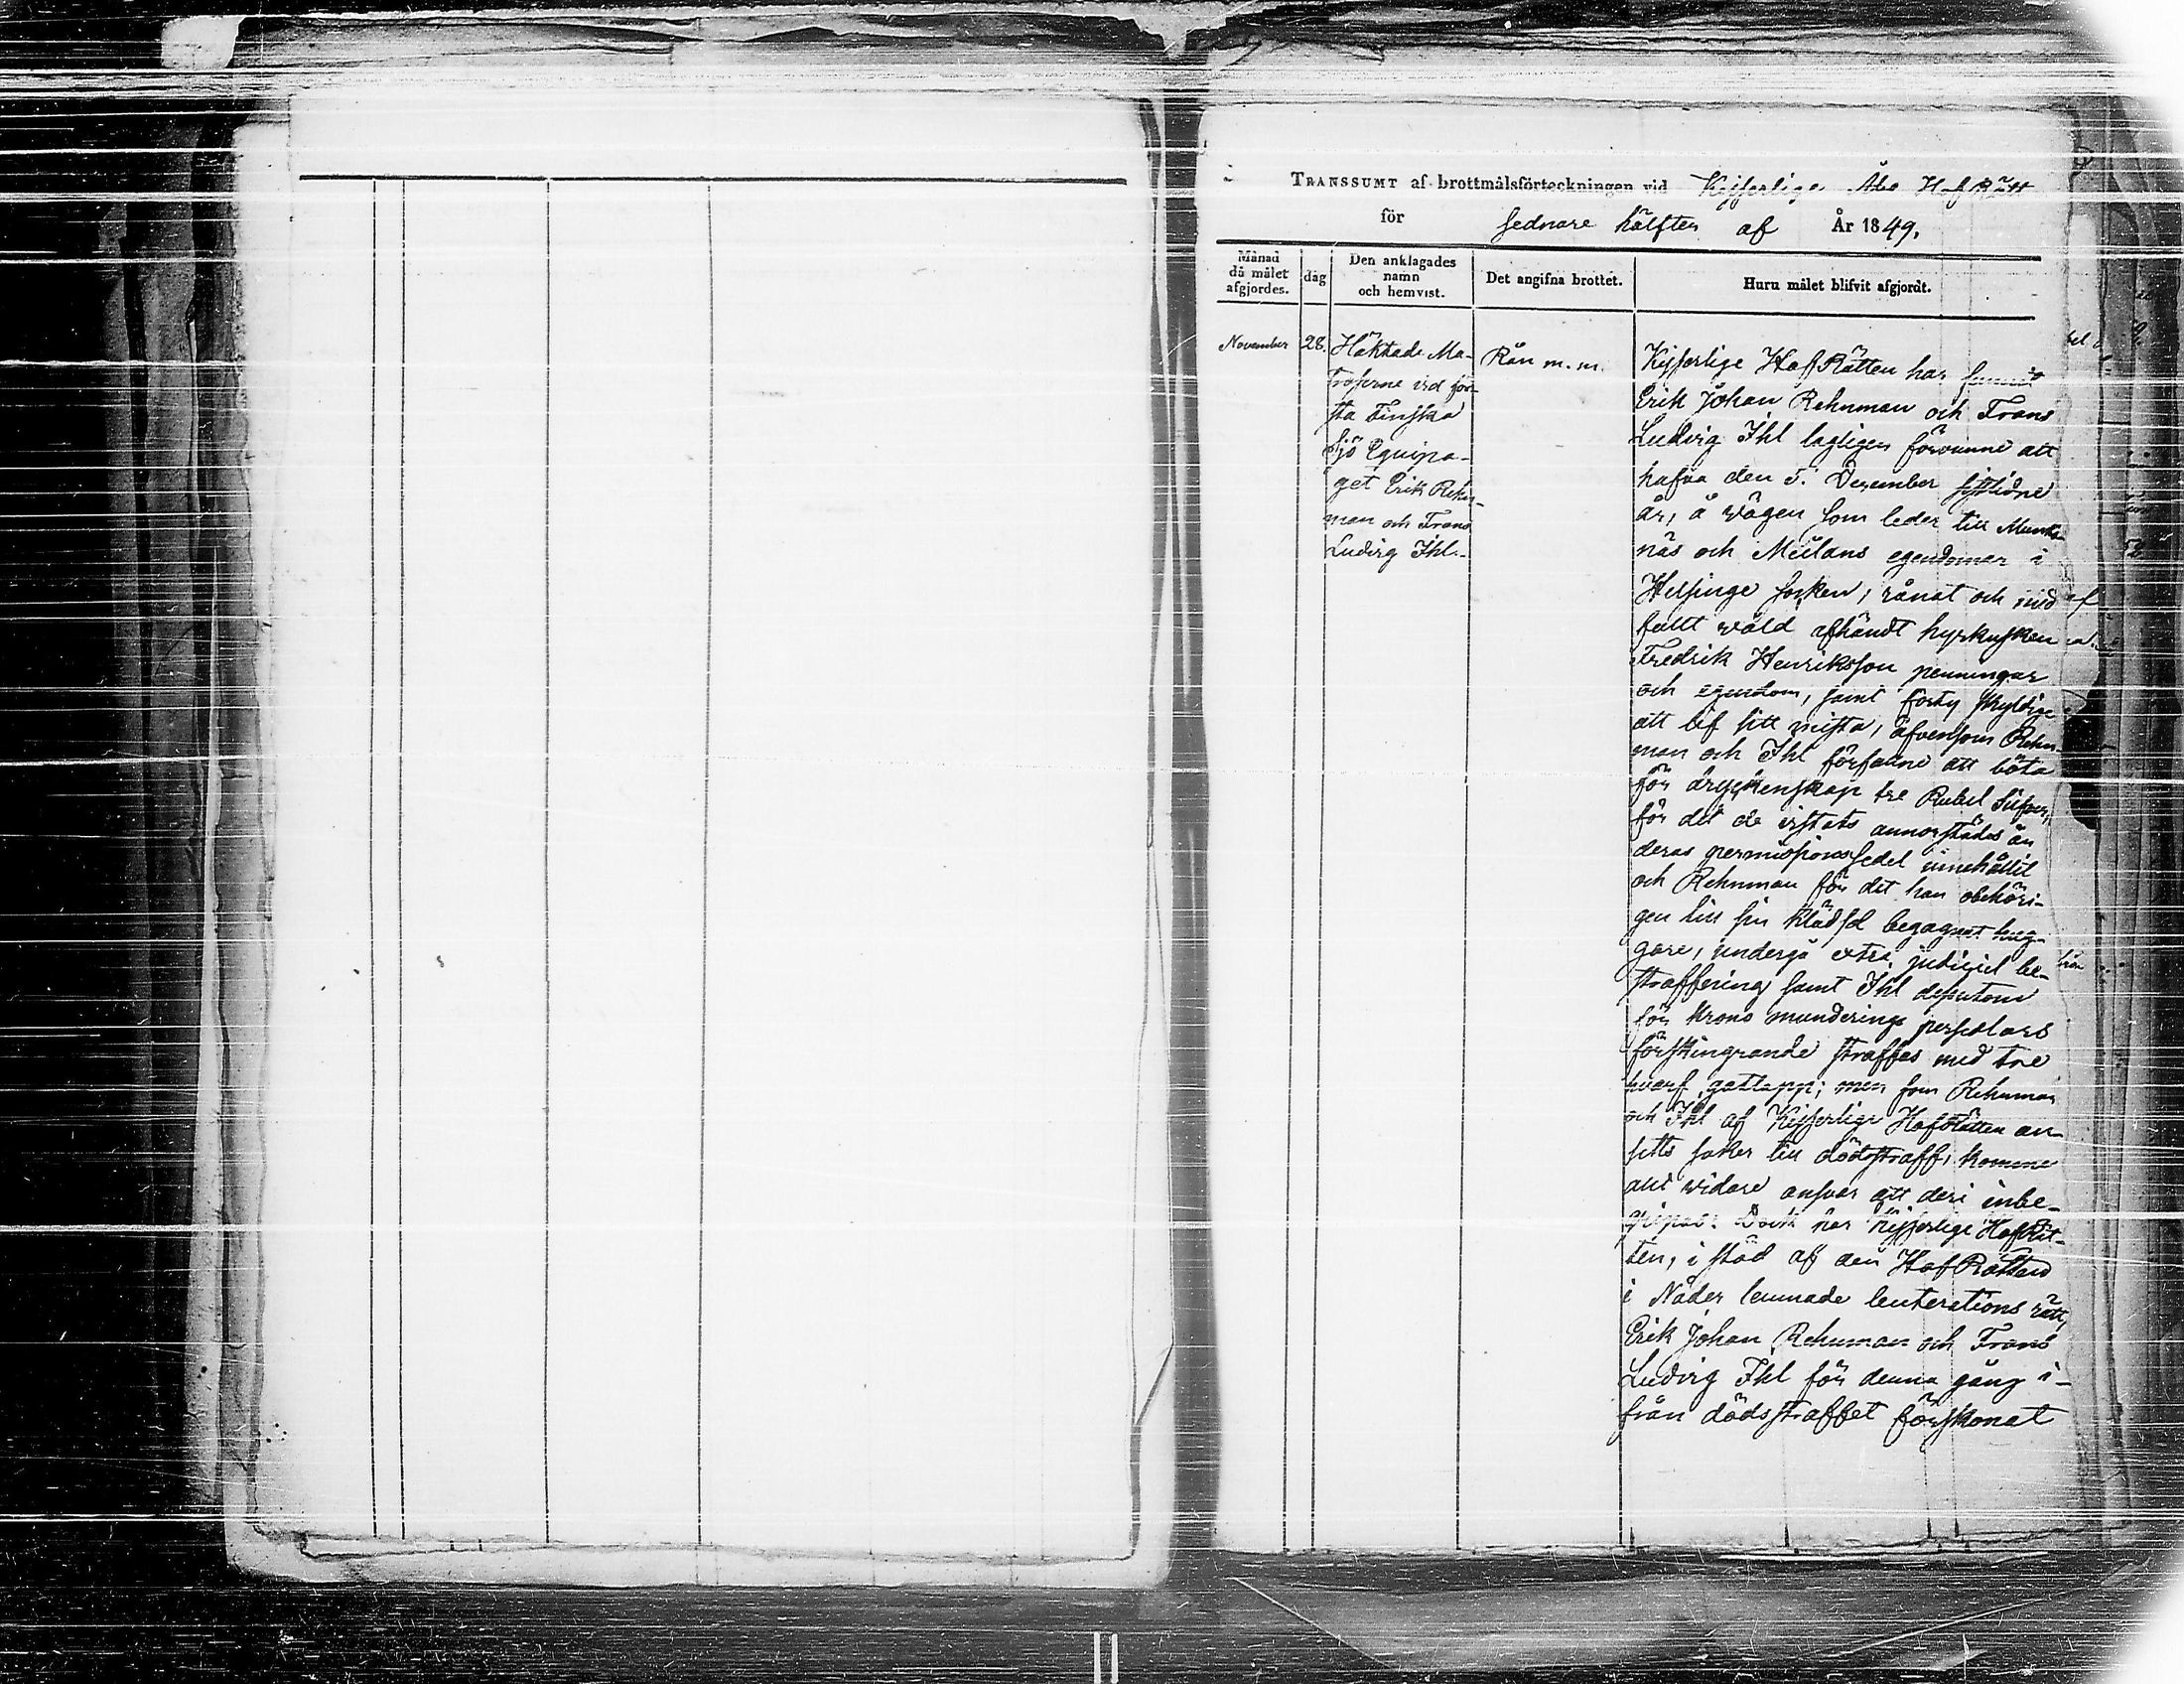 TRANSSUMT af brottmålsförteckningen vid Kejserlige Åbo HofRätt
för sednare hälften af År 1849.
Månad då målet afgjordes.
dag
Den anklagades namn och hemvist.
Det angifna brottet.
Huru målet blifvit afgjordt.
November
28.
Häktade Ma-
troserne vid för-
sta Finska
Sjö Equipa-
get Erik Rehn-
man och Frans
Ludvig Ihl.
Rån m. m.
Kejserlige HofRätten har funnit
Erik Johan Rehnman och Frans
Ludvig Ihl lagligen förvunne att
hafva den 5. December sistlidne
år, å vägen som leder till Munks-
näs och Meilans egendomar i
Helsinge socken, rånat och med
fullt våld afhändt hyrkusken
Fredrik Henriksson penningar
och egendom, samt fordy skyldige
att lif sitt mista, äfvensom Rehn-
man och Ihl förfallne att böta
för dryckenskap tre Rubel Silfver,
för det de vistats annorstädes än
deras permissionssedel innehållit
och Rehnman för det han obehöri-
gen till sin klädsel begagnat
undergå extra judiciel be-
straffning samt Ihl dessutom
för Krono munderings persedlars
förskingrande straffas med tre
hvarf gatlopp; men som Rehnman
och Ihl af Kejserlige HofRätten an-
setts saker till dödsstraff, komme
allt vidare ansvar att deri inbe-
gripas: Dock har Kejserlige HofRät-
ten, i stöd af den HofRätten
i Nåder lemnade leuterations rätt,
Erik Johan Rehnman och Frans
Ludvig Ihl för denna gång i-
från dödsstraffet förskonat